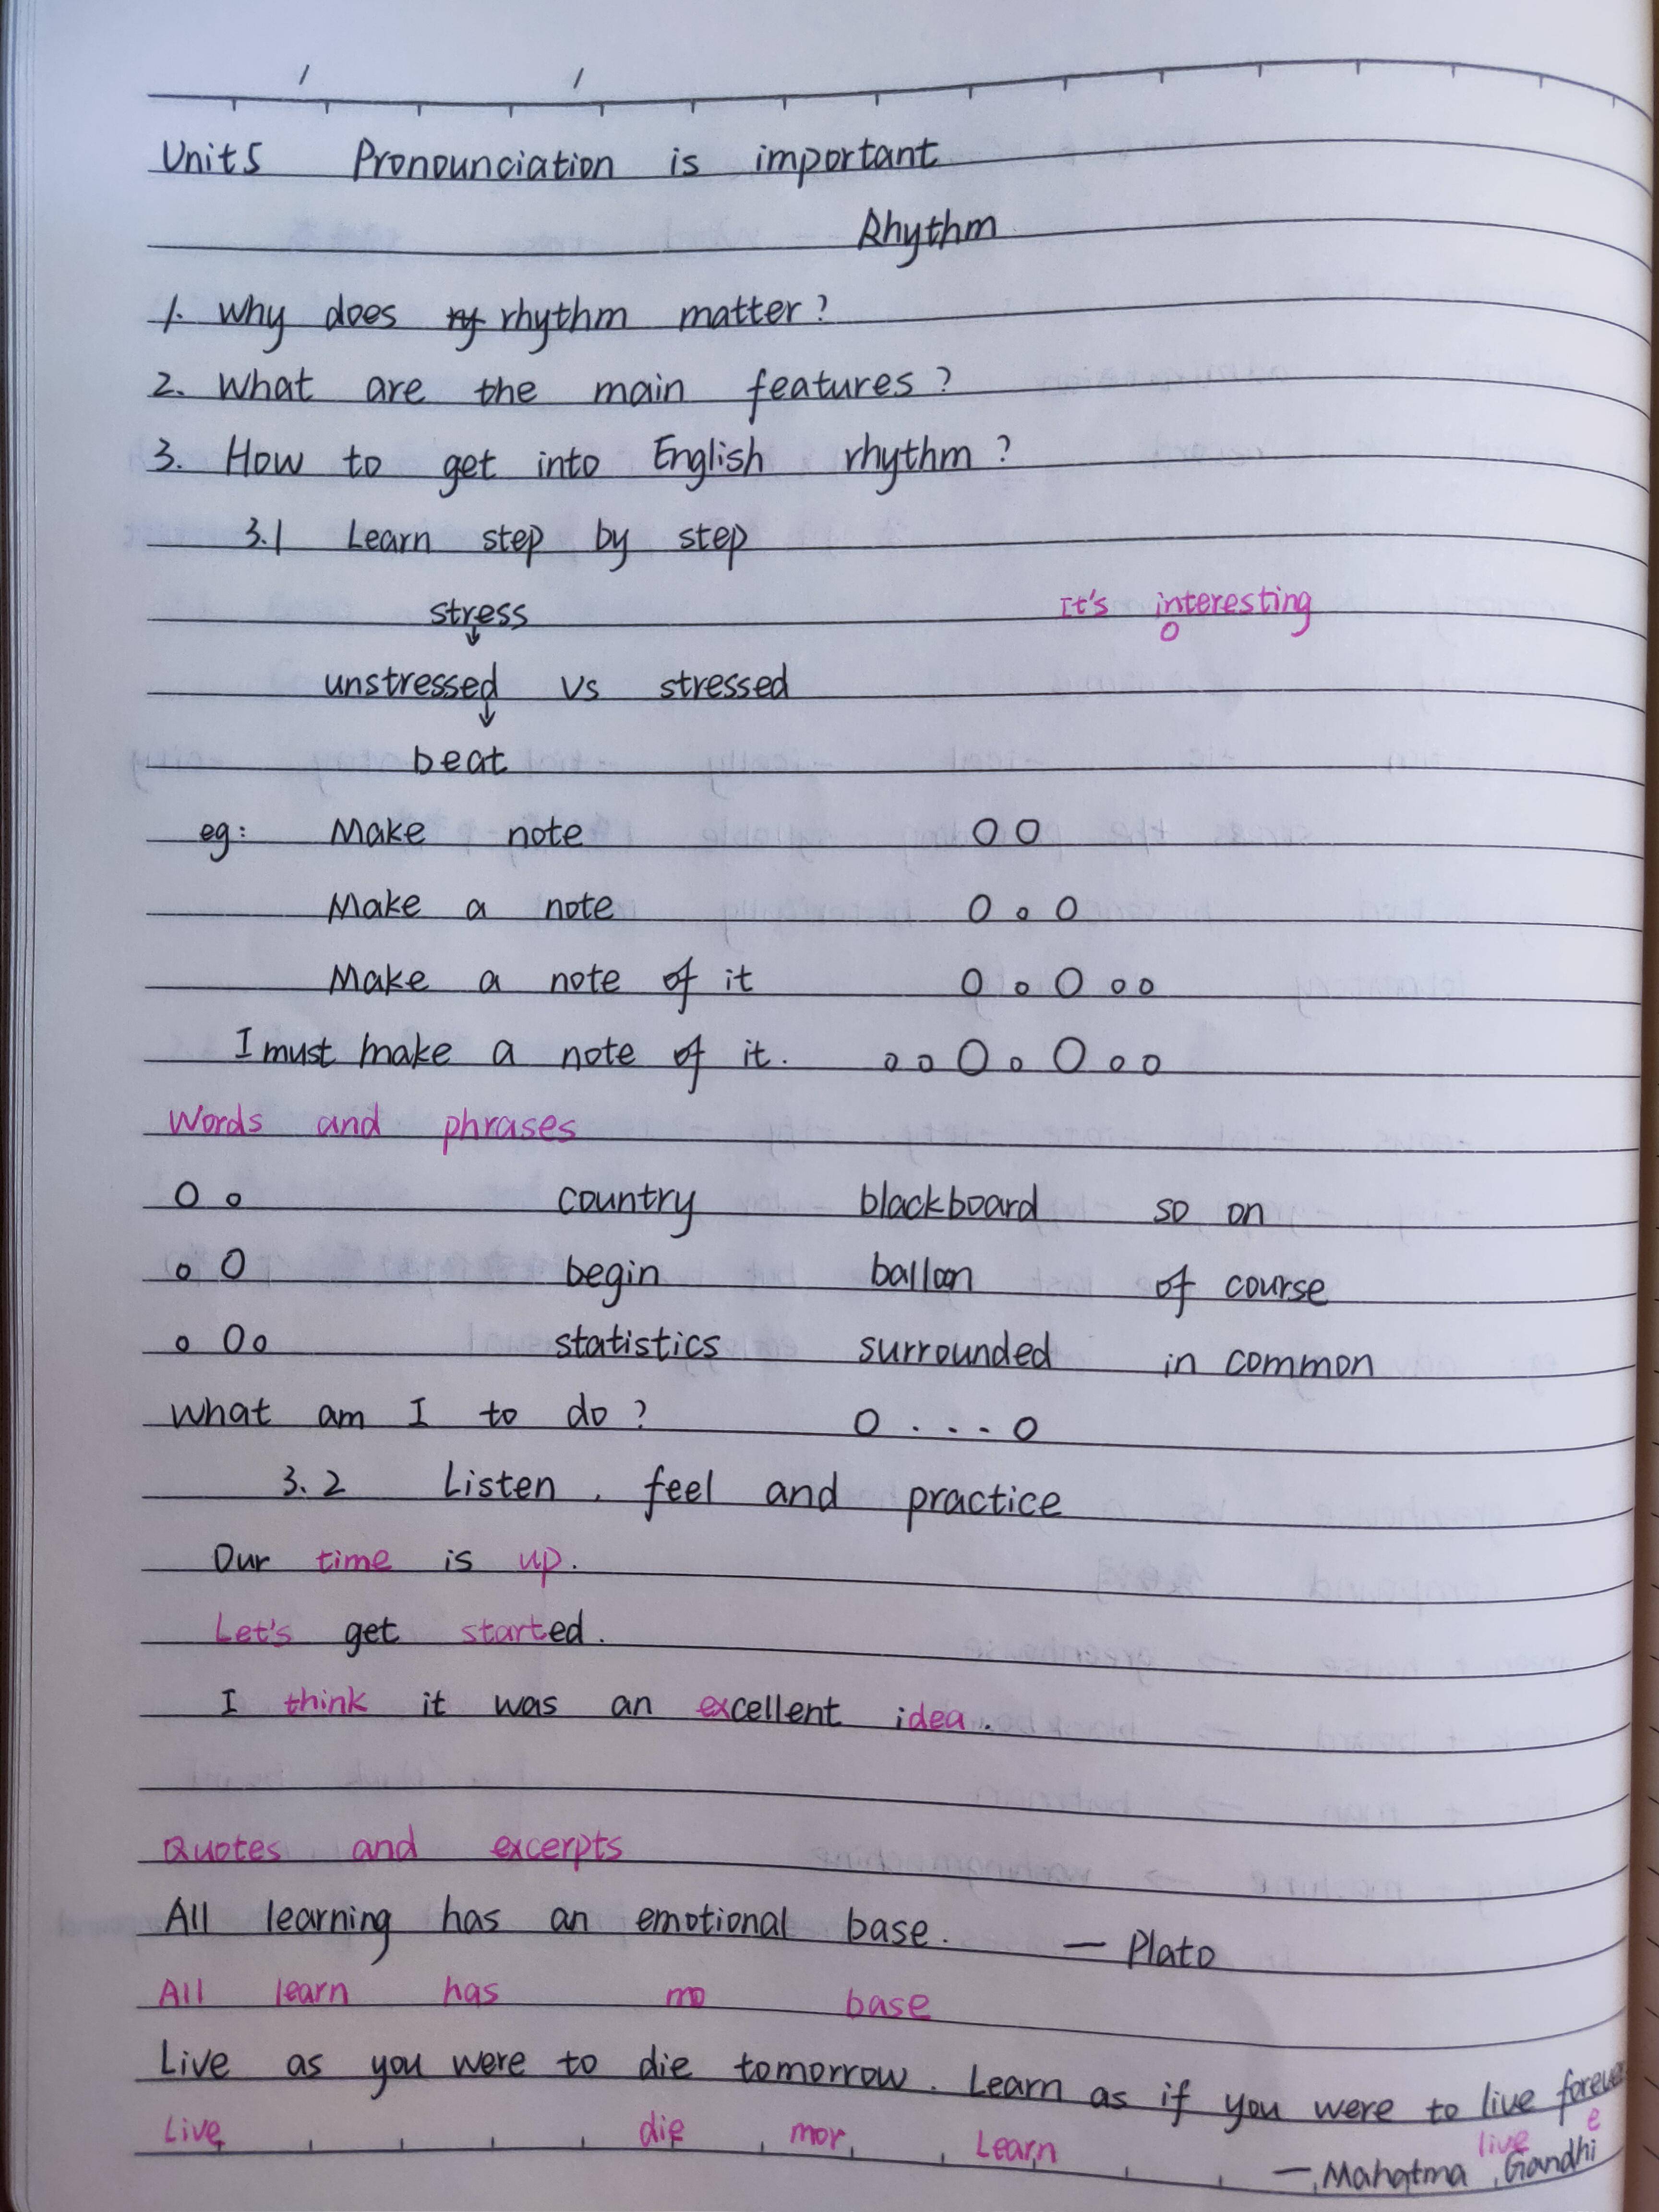 Unit5 Pronounciation is important
Rhythm
1. Why does rhythm matter?
2. What are the main features?
3. How to get into English rhythm?
3.1 Learn step by step
stress
It's interesting
o
↓
unstressed vs stressed
↓
beat
eg: Make note O O
Make a note O o O
Make a note of it O o O o o
I must make a note of it. o o O o O o o
Words and phrases
O o country blackboard so on
o O begin balloon of course
o O o statistics surrounded in common
What am I to do? O . . . O
3.2 Listen, feel and practice
Our time is up.
Let's get started.
I think it was an excellent idea.
Quotes and excerpts
All learning has an emotional base. — Plato
All learn has mo base
Live as you were to die tomorrow. Learn as if you were to live forever
Live die mor Learn live e
— Mahatma Gandhi